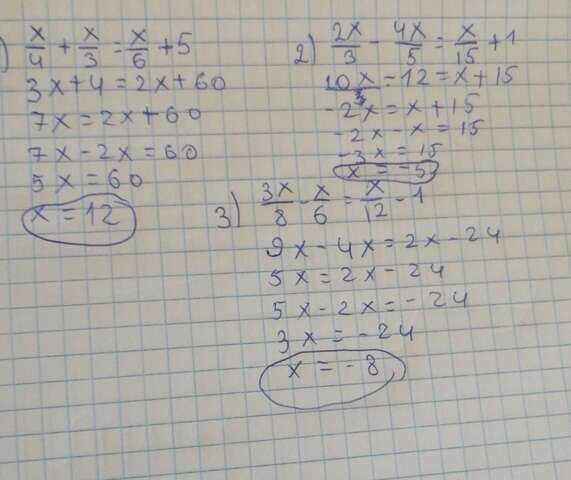 ) x/4 + x/3 = x/6 + 5
3x+4 = 2x+60
7x = 2x+60
7x-2x = 60
5x = 60
x = 12
2) 2x/3 - 4x/5 = x/15 + 1
10x - 12 = x+15
-2x = x+15
-2x-x = 15
-3x = 15
x = -5
3) 3x/8 - x/6 = x/12 - 1
9x-4x = 2x-24
5x = 2x-24
5x-2x = -24
3x = -24
x = -8